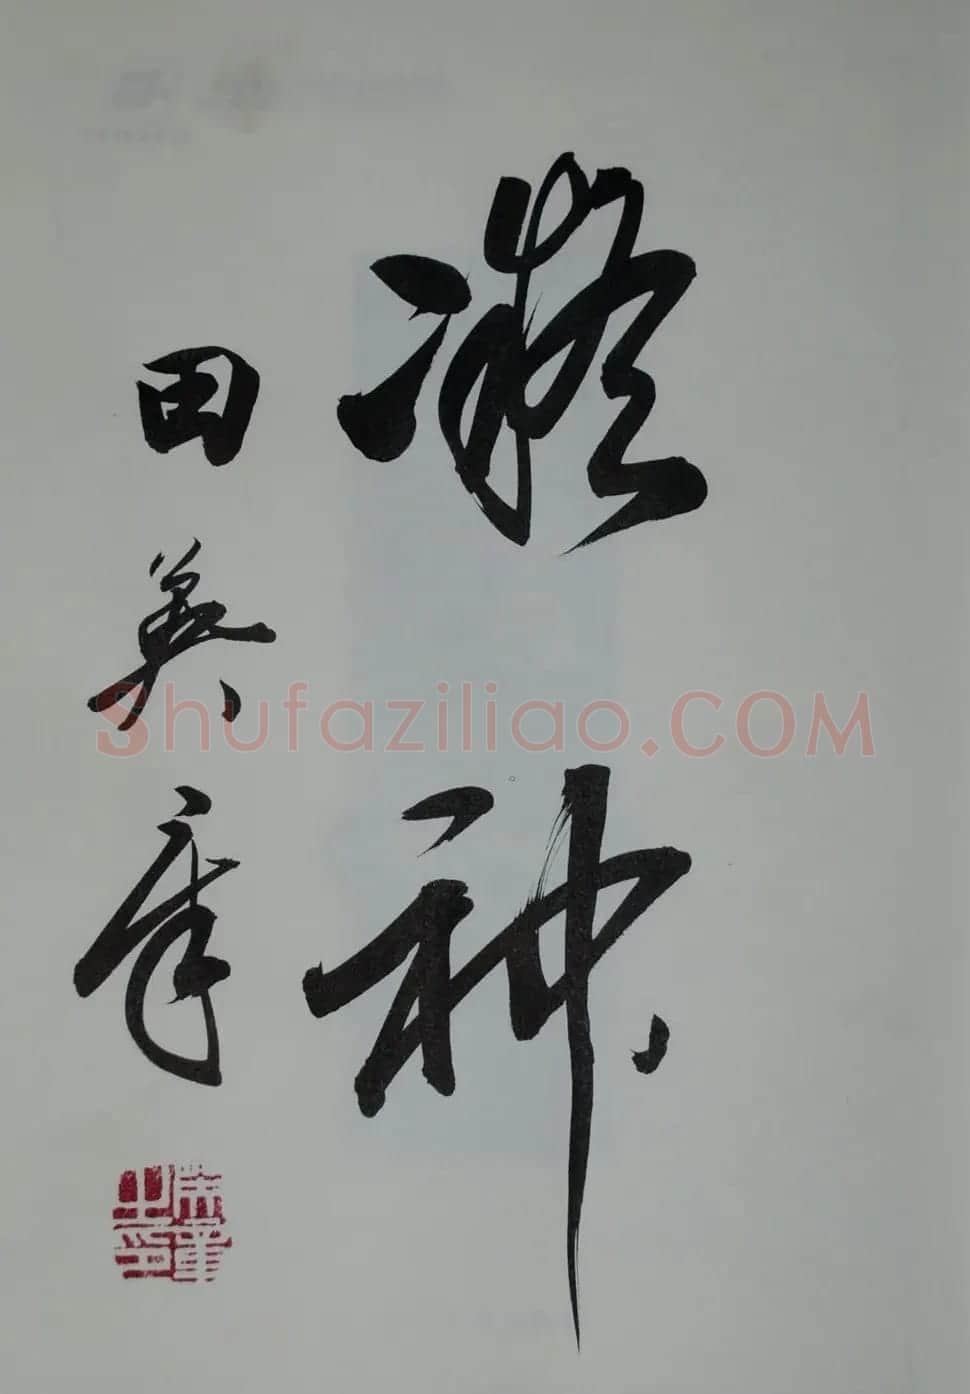 凝神
田英章
Shufaziliao.COM